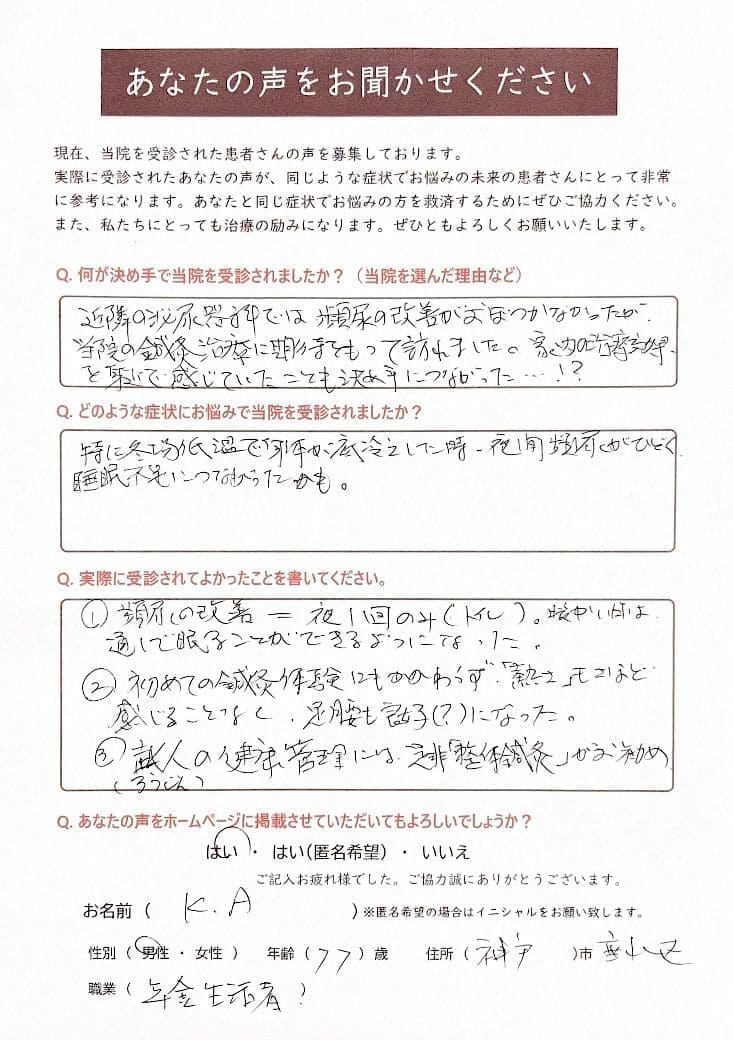 あなたの声をお聞かせください
現在、当院を受診された患者さんの声を募集しております。
実際に受診されたあなたの声が、同じような症状でお悩みの未来の患者さんにとって非常
に参考になります。あなたと同じ症状でお悩みの方を救済するためにぜひご協力ください。
また、私たちにとっても治療の励みになります。ぜひともよろしくお願いいたします。
Q. 何が決め手で当院を受診されましたか？（当院を選んだ理由など）
近隣の泌尿器科では頻尿の改善がおぼつかなかったが、
当院の鍼灸治療に期待をもって訪れました。家内の治療効果
を身近で感じていたことも決め手につながった…!?
Q. どのような症状にお悩みで当院を受診されましたか？
特に冬場低温で身体が底冷えした時、夜間頻尿がひどく、
睡眠不足につながったかも。
Q. 実際に受診されてよかったことを書いてください。
① 頻尿の改善＝夜1回のみ(トイレ)。暖かい日は
通しで眠ることができるようになった。
② 初めての鍼灸体験にもかかわらず、「熱さ」もさほど
感じることなく、足腰も調子(?)になった。
③ 人の健康管理には、是非「整体鍼灸」がお勧め
(ろうじん)
Q. あなたの声をホームページに掲載させていただいてもよろしいでしょうか？
はい ・ はい(匿名希望) ・ いいえ
ご記入お疲れ様でした。ご協力誠にありがとうございます。
お名前 ( K.A ) ※匿名希望の場合はイニシャルをお願い致します。
性別 ( 男性 ・ 女性 ) 年齢 ( 77 ) 歳 住所 ( 神戸 )市 垂水区
職業 ( 年金生活者 )